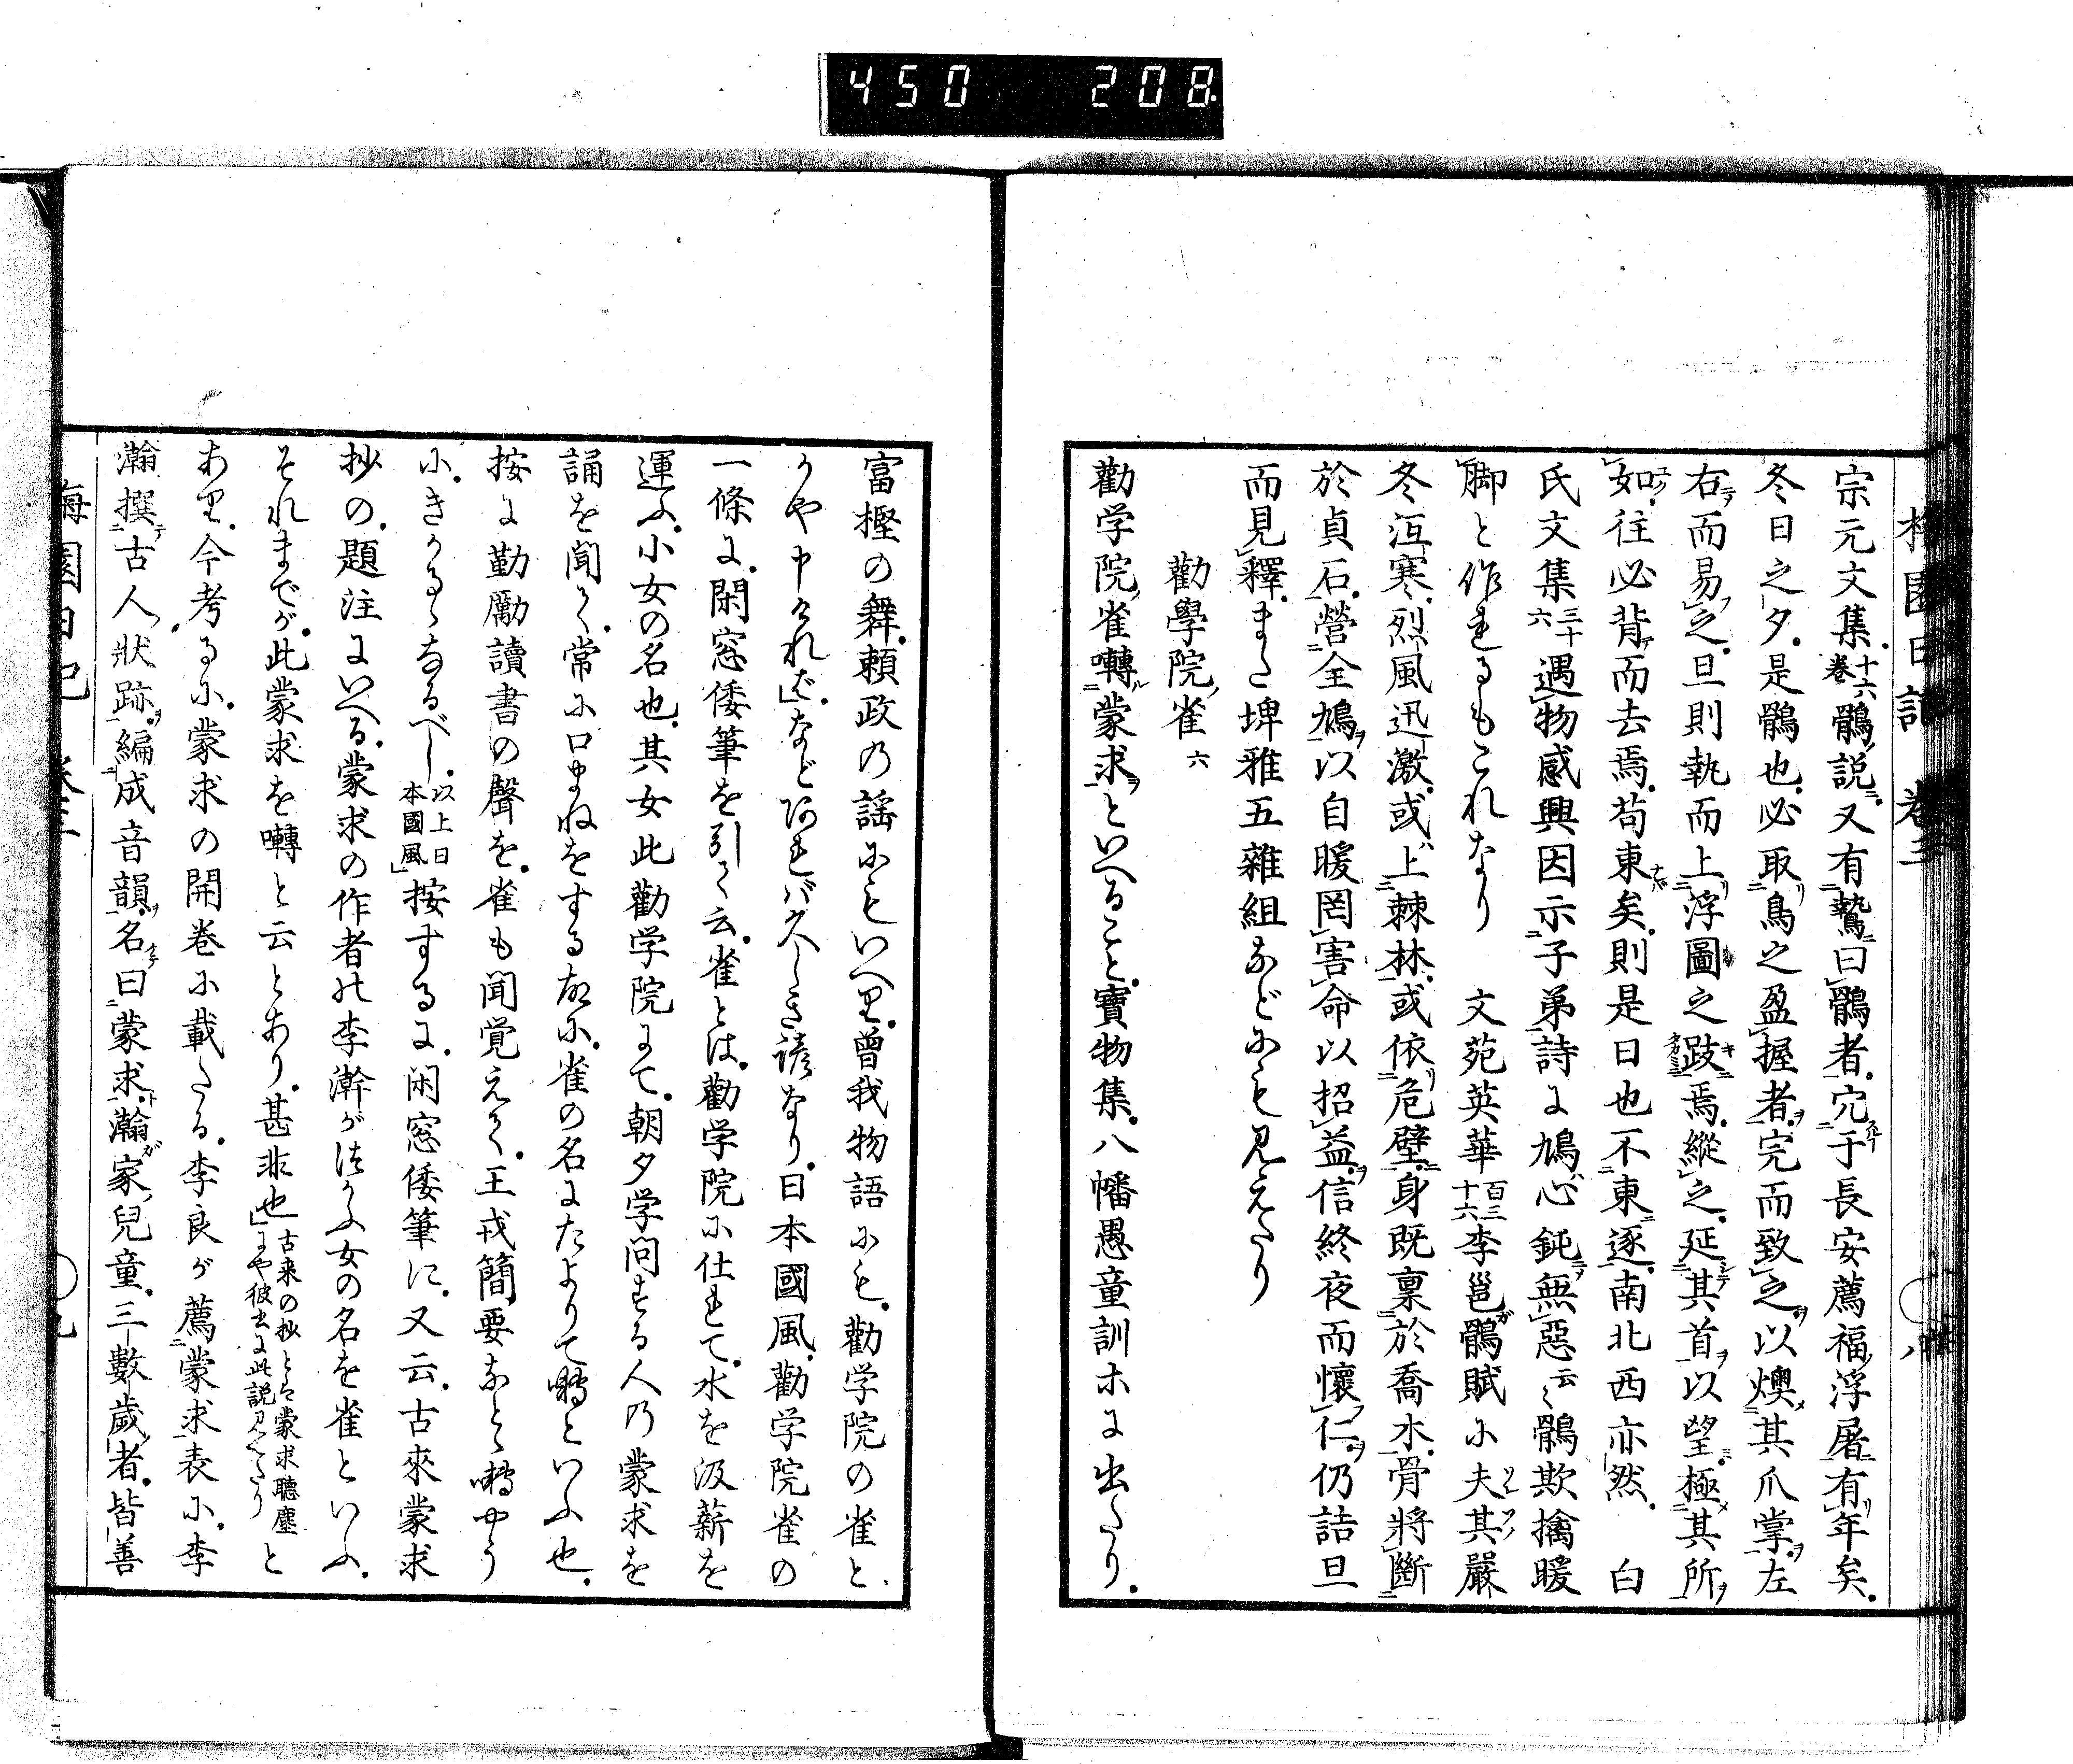 450 208
梅園日記 卷三
宗元文集十六卷鶻説。又有鷙曰鶻者。穴于長安薦福浮屠有年矣。
冬日之夕。是鶻也。必取鳥之盈握者。完而致之。以燠其爪掌。左
右而易之。旦則執而上浮圖之跂焉。縱之。延其首以望。極其所
如。往必背而去焉。苟東矣。則是日也不東逐。南北西亦然。 白
氏文集三十六遇物感興因示子弟詩に鳩心鈍無惡云〻鶻欺擒暖
脚と作れるもこれなり 文苑英華百三十六李邕鶻賦に夫其嚴
冬沍寒。烈風迅激。或上棘林。或依危壁。身既稟於喬木。骨將斷
於貞石。營全鳩以自暖罔害命以招益。信終夜而懷仁。仍詰旦
而見釋。また埤雅五雜組などにも見えたり
勸學院雀 六
勸学院雀囀蒙求といへること。寶物集。八幡愚童訓ホに出たり。
富樫の舞。頼政の謡にもいへり。曾我物語にも。勸学院の雀と
かや申ければ」など
あれば久しき諺なり。日本國風。勸学院雀の
一條に。閑窓倭筆を引て云。雀とは。勸学院に仕れて。水を汲薪を
運ふ。小女の名也。其女此勸学院にて。朝夕学問する人の蒙求を
誦を聞て。常に口まねをする故に。雀の名によりて囀といふ也。
按に勤勵讀書の聲を。雀も聞覚えて。王戎簡要なとゝ囀やう
に。きかるゝなるべし。以上日本國風」按するに。閑窓倭筆に。又云。古來蒙求
抄の。題注にいへる。蒙求の作者の李瀚がつかふ女の名を雀といふ。
それまでが。此蒙求を囀と云とあり。甚非也」古来の抄とは蒙求聽塵にや彼書に此説見へたりと
あり。今考るに。蒙求の開卷に載たる。李良が薦蒙求表に。李
瀚撰古人狀跡。編成音韻。名曰蒙求。瀚家兒童。三數歲者。皆善
梅園日記 卷三